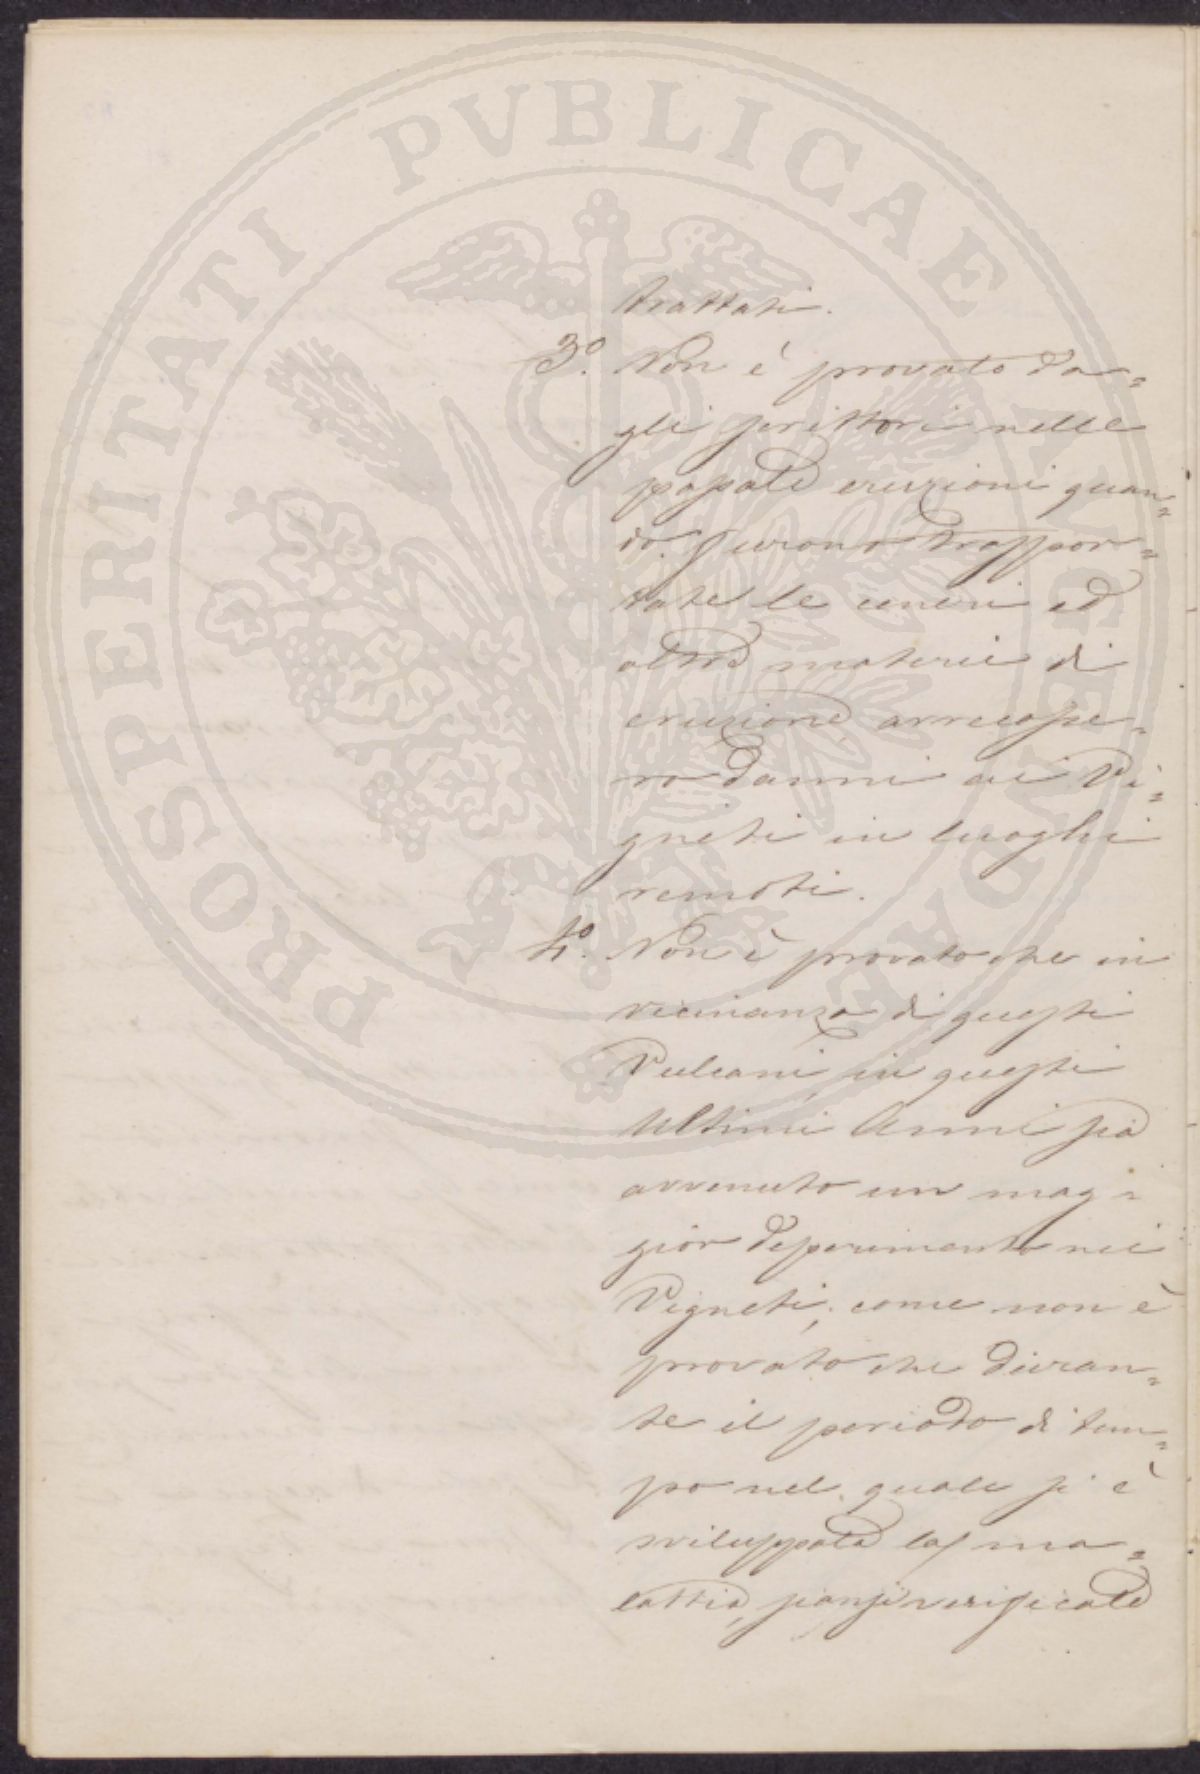 PROSPERITATI PUBLICAE AUGENDAE
trattati.
3º. Non è provato da=
gli scrittori nelle
passate eruzioni quan=
do furono traspor=
tate le ceneri ed
altre materie di
eruzione arrecasse=
ro danni ai Vi=
gneti in luoghi
remoti.
4º. Non è provato che in
vicinanza di questi
Vulcani, in questi
ultimi Anni sia
avvenuto un mag=
gior deperimento nei
Vigneti, come non è
provato che duran=
te il periodo di tem=
po nel quale si è
sviluppata la ma=
lattia, siansi verificate